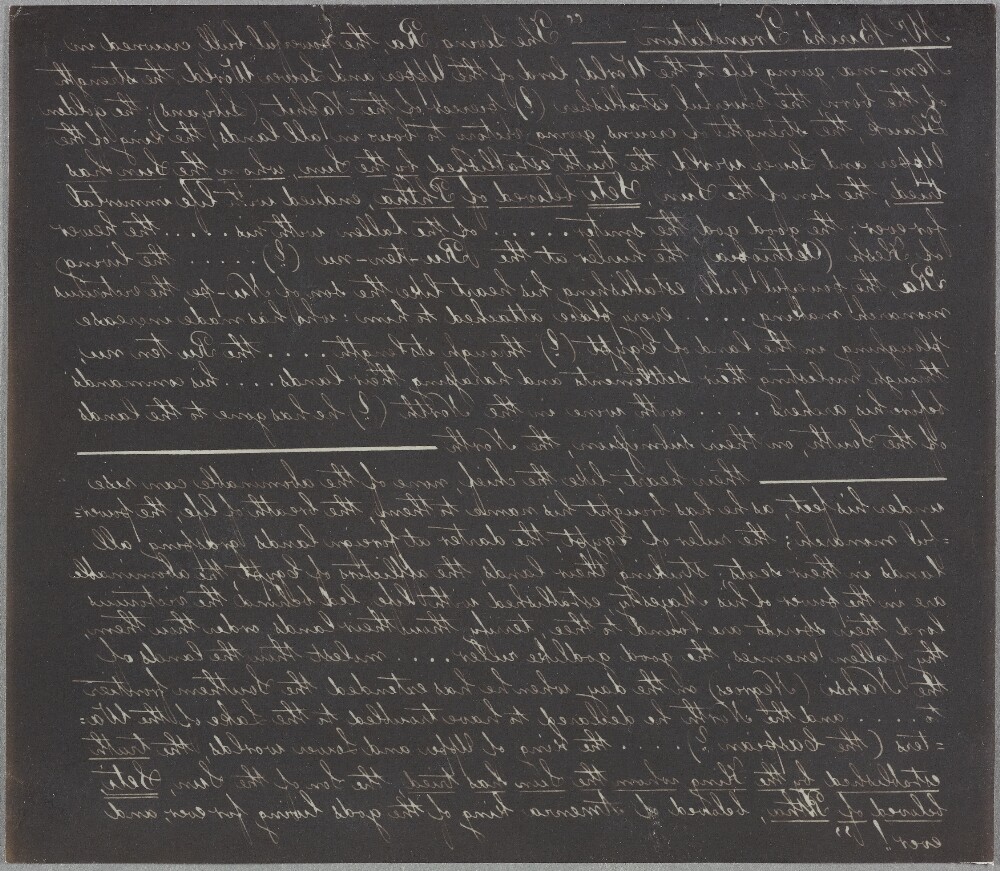 Mr. Birch's Translation — "The living Ra, the powerful bull crowned in
Nem-ma, giving life to the World, lord of the Upper and Lower World, the strength
of the born, the powerful establisher (?) Opener of the Naphut (Libyans); the golden
Hawk, the strengths of crowns giving victors to bow in all lands, the king of the
Upper and Lower world, the truth established by the Sun, whom the Sun has
tried, the son of the Sun, Seti beloved of Pntha, endued with life immortal
for ever: the good god, the smiter . . . . . of the fallen with his . . . . . the hewer
of Kesh (Aethiopia), the hurler at the Ru-ten-nu (?) . . . . . the living
Ra, the powerful bull, establishing his heart like the son of Nu-pe, the victorious
monarch making . . . . . every place attached to him: who has made increase
ploughing in the land of Egypt (?) through its length . . . . the Ru ten nu,
through insulating their settlements and harassing their lands . . . . his commands
when his aches . . . . . with wine in the North (?) he has gone to the lands
of the South, on their submission, the North,
their heart, like the chief, none of the abominable can rise
under his feet, as he has brought his name to them, the breath of life, the power=
=ful monarch; the ruler of Egypt, the darter at foreign lands grasping all
lands in their seats, striking their lands the afflicters of Egypt, the abominable
are in the power of his Majesty, established with life led behind the victorious
lord their spirits are bound to thee, terrify thou their lands order thou them,
thy fallen enemies, the good godlike ruler . . . . . rulest thou the lands of
the Nahsi (Negroes) on the day when he has extended the Southern frontier
to . . . . and the North he declared to have trembled to the Lake of the Wa=
=ters (the Caspian?) . . . . . the king of Upper and Lower worlds the truth
established by the King whom the Sun has tried, the Son of the Sun, Seti
beloved of Ptha, beloved of Amenra king of the gods living for ever, and
ever!"